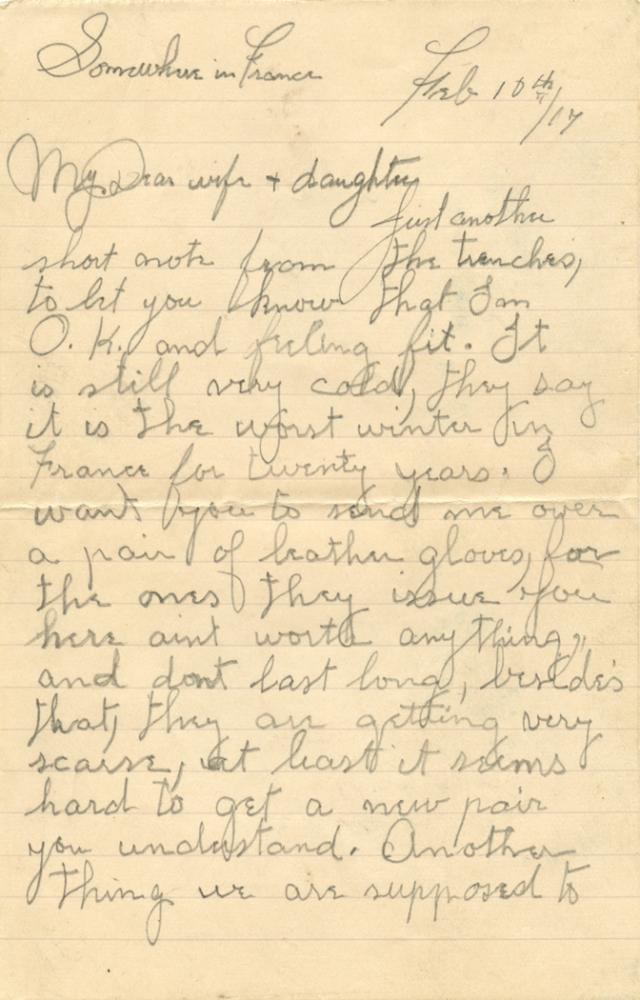 Somewhere in France
Feb 10th/17
My Dear wife + daughter
Just another
short note from the trenches,
to let you know that I'm
O.K. and feeling fit. It
is still very cold, they say
it is the worst winter in
France for twenty years. I
want you to send me over
a pair of leather gloves, for
the ones they issue you
here aint worth anything,
and dont last long, besides
that, they are getting very
scaise, at least it seems
hard to get a new pair
you understand. Another
thing we are supposed to